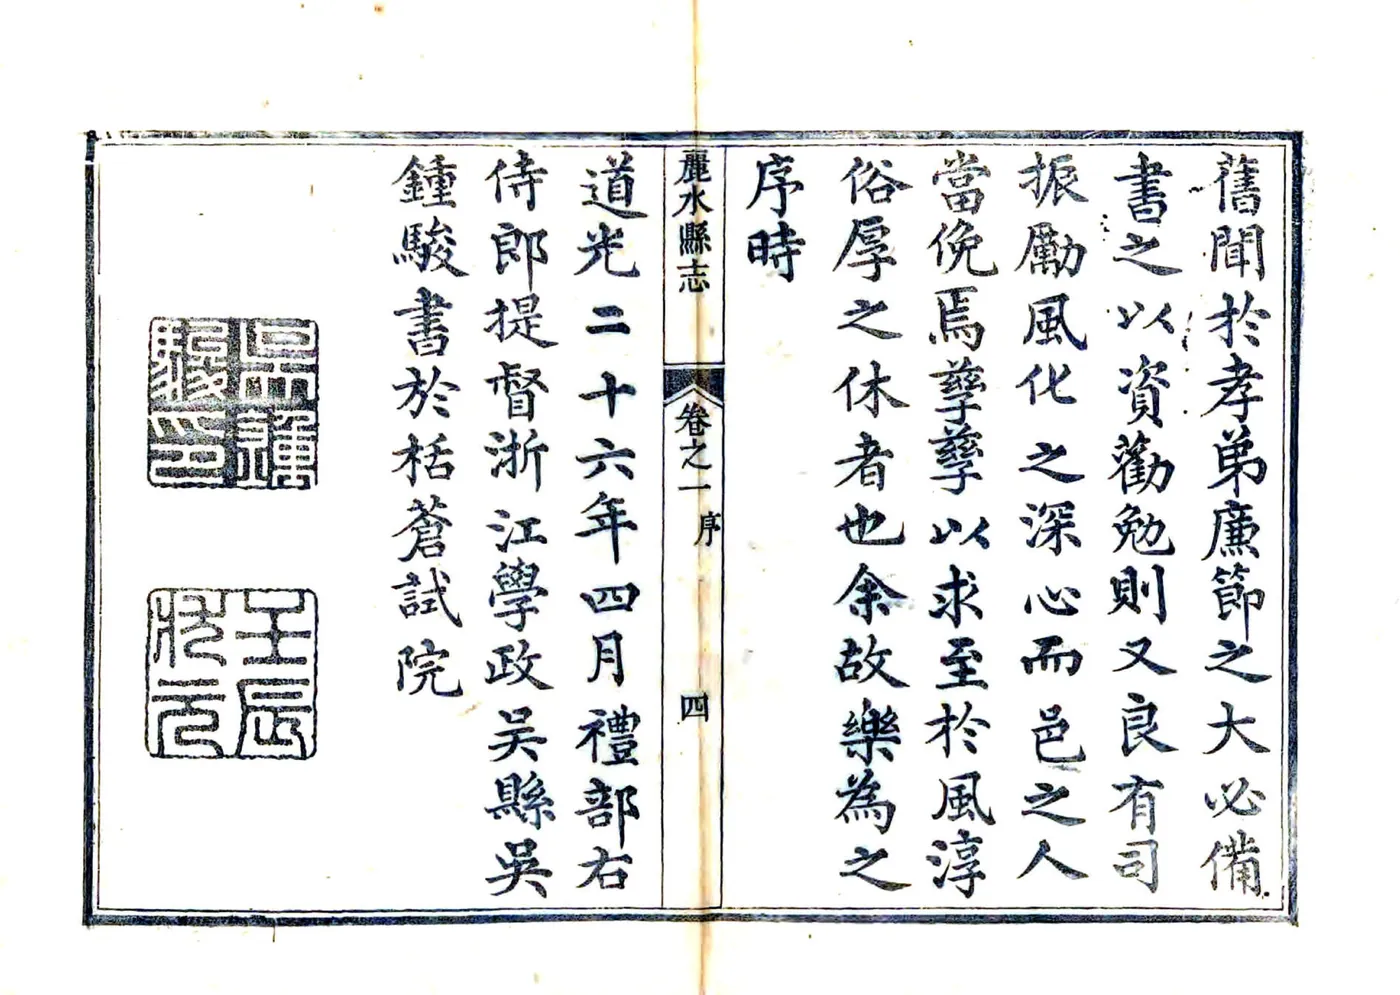 舊聞於孝弟廉節之大必備
書之以資勸勉則又良有司
振勵風化之深心而邑之人
當俛焉孳孳以求至於風淳
俗厚之休者也余故樂為之
序時
麗水縣志
卷之一
序
四
道光二十六年四月禮部右
侍郎提督浙江學政吳縣吳
鍾駿書於栝蒼試院
吳鍾駿印
壬辰狀元